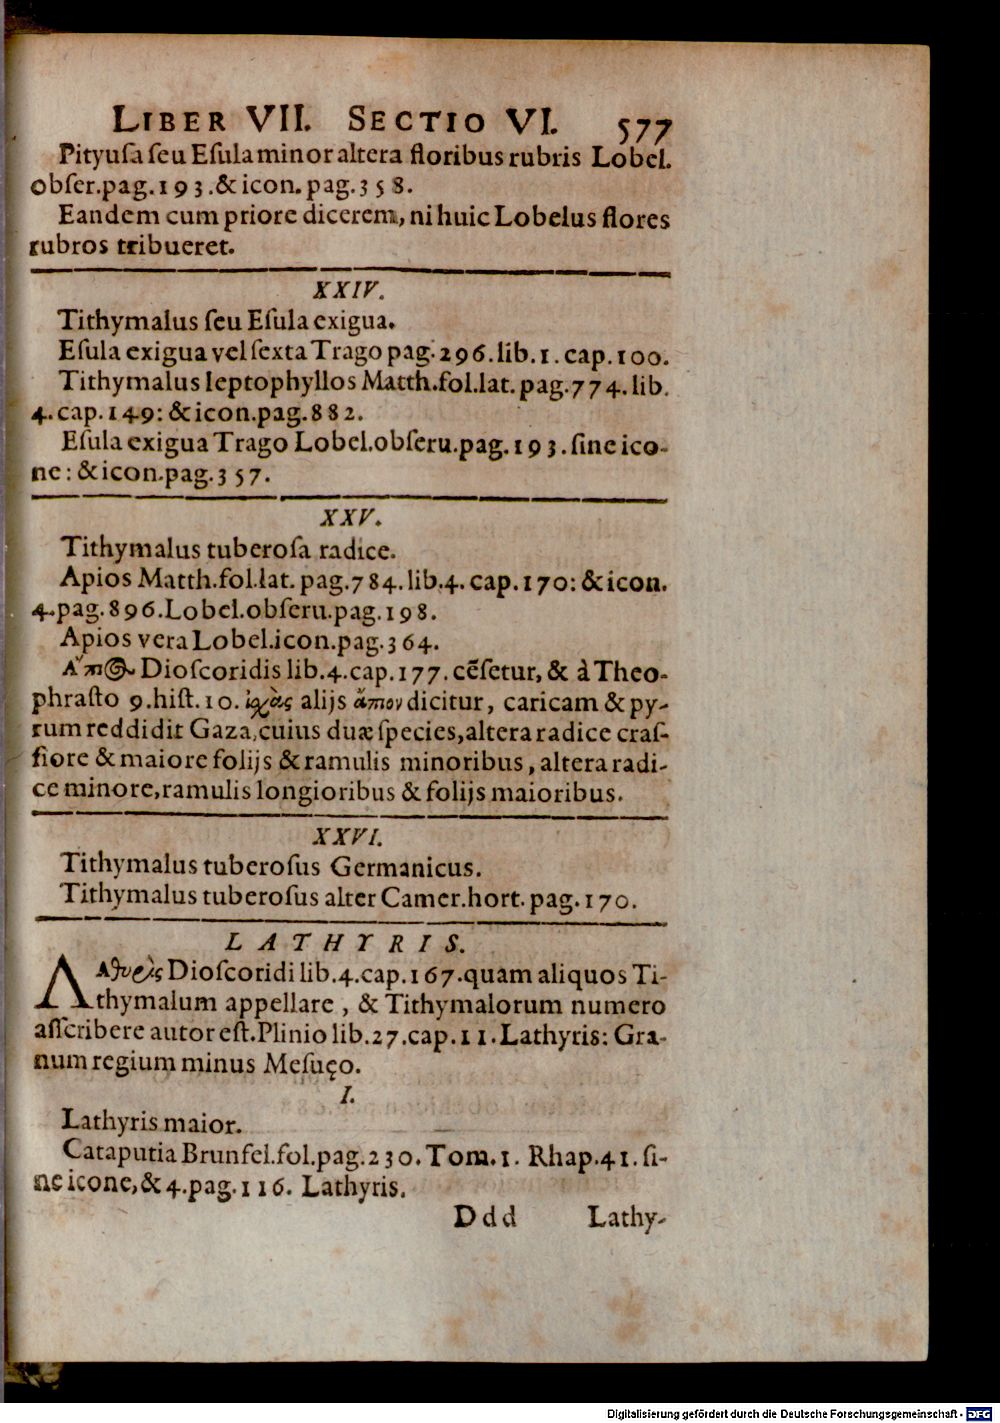 LIBER VII. SECTIO VI. 577
Pityuſa ſeu Eſula minor altera floribus rubris Lobel.
obſer.pag.193.& icon.pag.358.
Eandem cum priore dicerem, ni huic Lobelus flores
rubros tribueret.
XXIV.
Tithymalus ſeu Eſula exigua.
Eſula exigua vel ſexta Trago pag.296.lib.1.cap.100.
Tithymalus leptophyllos Matth.fol.lat.pag.774.lib.
4.cap.149: & icon.pag.882.
Eſula exigua Trago Lobel.obſeru.pag.193.ſine ico-
ne: & icon.pag.357.
XXV.
Tithymalus tuberoſa radice.
Apios Matth.fol.lat. pag.784.lib.4.cap.170: & icon.
4.pag.896.Lobel.obſeru.pag.198.
Apios vera Lobel.icon.pag.364.
Ἄπιος Dioſcoridis lib.4.cap.177. cẽſetur, & à Theo-
phraſto 9.hiſt.10. ἰχὰς alijs ἄπιον dicitur, caricam & py-
rum reddidit Gaza,cuius duæ ſpecies,altera radice craſ-
ſiore & maiore folijs & ramulis minoribus, altera radi-
ce minore,ramulis longioribus & folijs maioribus.
XXVI.
Tithymalus tuberoſus Germanicus.
Tithymalus tuberoſus alter Camer.hort. pag.170.
LATHYRIS.
Λαθυρὶς Dioſcoridi lib.4.cap.167.quam aliquos Ti-
thymalum appellare, & Tithymalorum numero
aſſcribere autor eſt.Plinio lib.27.cap.11.Lathyris: Gra-
num regium minus Meſuço.
I.
Lathyris maior.
Cataputia Brunfel.fol.pag.230.Tom.1. Rhap.41.ſi-
ne icone,& 4.pag.116. Lathyris.
Ddd Lathy-
Digitalisierung gefördert durch die Deutsche Forschungsgemeinschaft - DFG